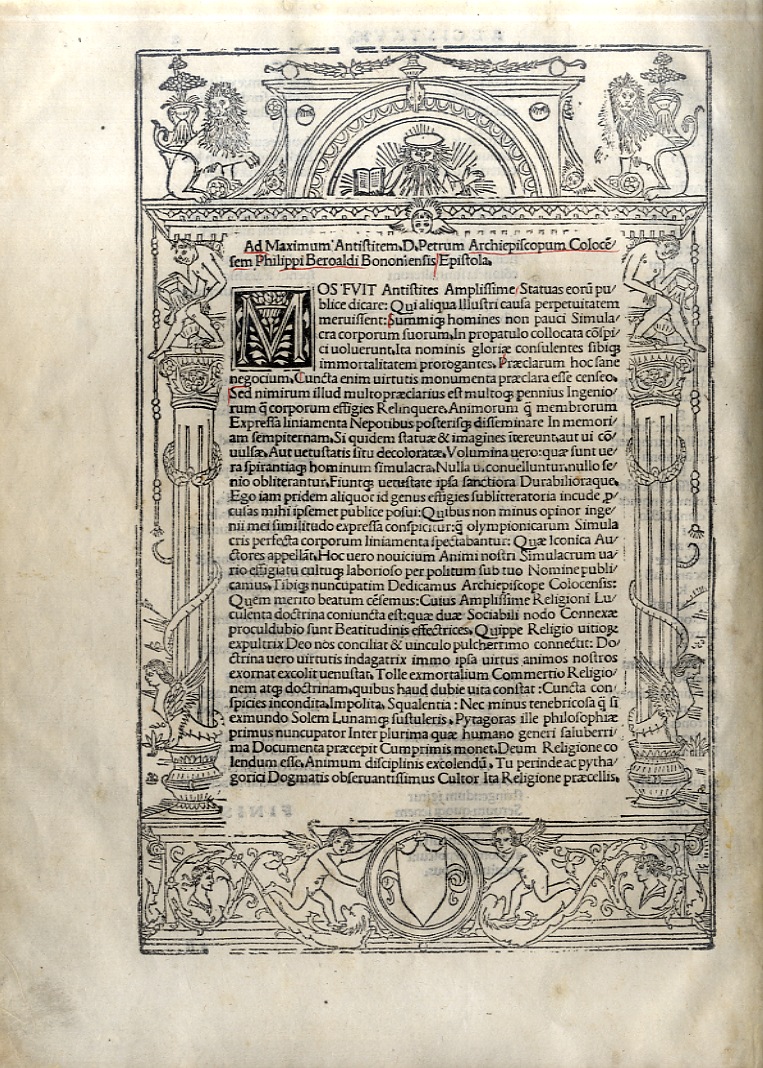 Ad Maximum Antistitem.D.Petrum Archiepiscopum Colocē/
sem Philippi Beroaldi Bononiensis Epistola.
MOS FVIT Antistites Amplissime Statuas eorū pu/
blice dicare: Qui aliqua Illustri causa perpetuitatem
meruissent: Summiq; homines non pauci Simula/
cra corporum suorum. In propatulo collocata cōspi/
ci uoluerunt. Ita nominis gloriæ consulentes sibiq;
immortalitatem prorogantes. Præclarum hoc sane
negocium. Cuncta enim uirtutis monumenta præclara esse censeo.
Sed nimirum illud multo præclarius est multoq; pennius Ingenio/
rum q̄ corporum effigies Relinquere. Animorum q̄ membrorum
Expressa liniamenta Nepotibus posterisq; disseminare In memori/
am sempiternam. Si quidem statuæ & imagines itereunt. aut ui cō/
uulsæ. Aut uetustatis situ decoloratæ. Volumina uero: quæ sunt ue/
ra spirantiaq; hominum simulacra. Nulla u. conuelluntur. nullo se/
nio obliterantur. Fiuntq; uetustate ipsa sanctiora Durabilioraque.
Ego iam pridem aliquot id genus effigies sublitteratoria incude ꝑ/
cusas mihi ipsemet publice posui: Quibus non minus opinor inge/
nii mei similitudo expressa conspicitur: q̄ olympionicarum Simula
cris perfecta corporum liniamenta spectabantur: Quæ Iconica Au/
ctores appellāt. Hoc uero nouicium Animi nostri Simulacrum ua/
rio effigiatu cultuq; laborioso per politum sub tuo Nomine publi/
camus. Tibiq; nuncupatim Dedicamus Archiepiscope Colocensis:
Quem merito beatum cēsemus: Cuius Amplissime Religioni Lu/
culenta doctrina coniuncta est: quæ duæ Sociabili nodo Connexæ
proculdubio sunt Beatitudinis effectrices. Quippe Religio uitioꝝ
expultrix Deo nos conciliat & uinculo pulcherrimo connectit: Do/
ctrina uero uirtutis indagatrix immo ipsa uirtus animos nostros
exornat excolit uenustat. Tolle exmortalium Commertio Religio/
nem atq; doctrinam. quibus haud dubie uita constat: Cuncta con/
spicies incondita. Impolita. Squalentia: Nec minus tenebricosa q̄ si
exmundo Solem Lunamq; sustuleris. Pytagoras ille philosophiæ
primus nuncupator Inter plurima quæ humano generi saluberri/
ma Documenta præcepit Cumprimis monet. Deum Religione co
lendum esse. Animum disciplinis excolendū. Tu perinde ac pytha/
gorici Dogmatis obseruantissimus Cultor Ita Religione præcellis.